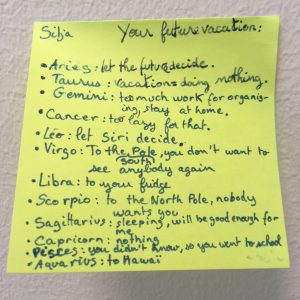 Silja Your future vacation:
• Aries: let the future decide.
• Taurus: vacations doing nothing.
• Gemini: too much work for organis-
ing, stay at home.
• Cancer: too lazy for that.
• Léo: let Siri decide.
• Virgo: To the Pole, you don't want to
south
see anybody again
• Libra: to your fridge
• Scorpio: to the North Pole, nobody
wants you
• Sagittarius: sleeping, will be good enough for
me
• Capricorn: nothing
• Pisces: you didn't know, so you went to school
• Aquarius: to Hawaï